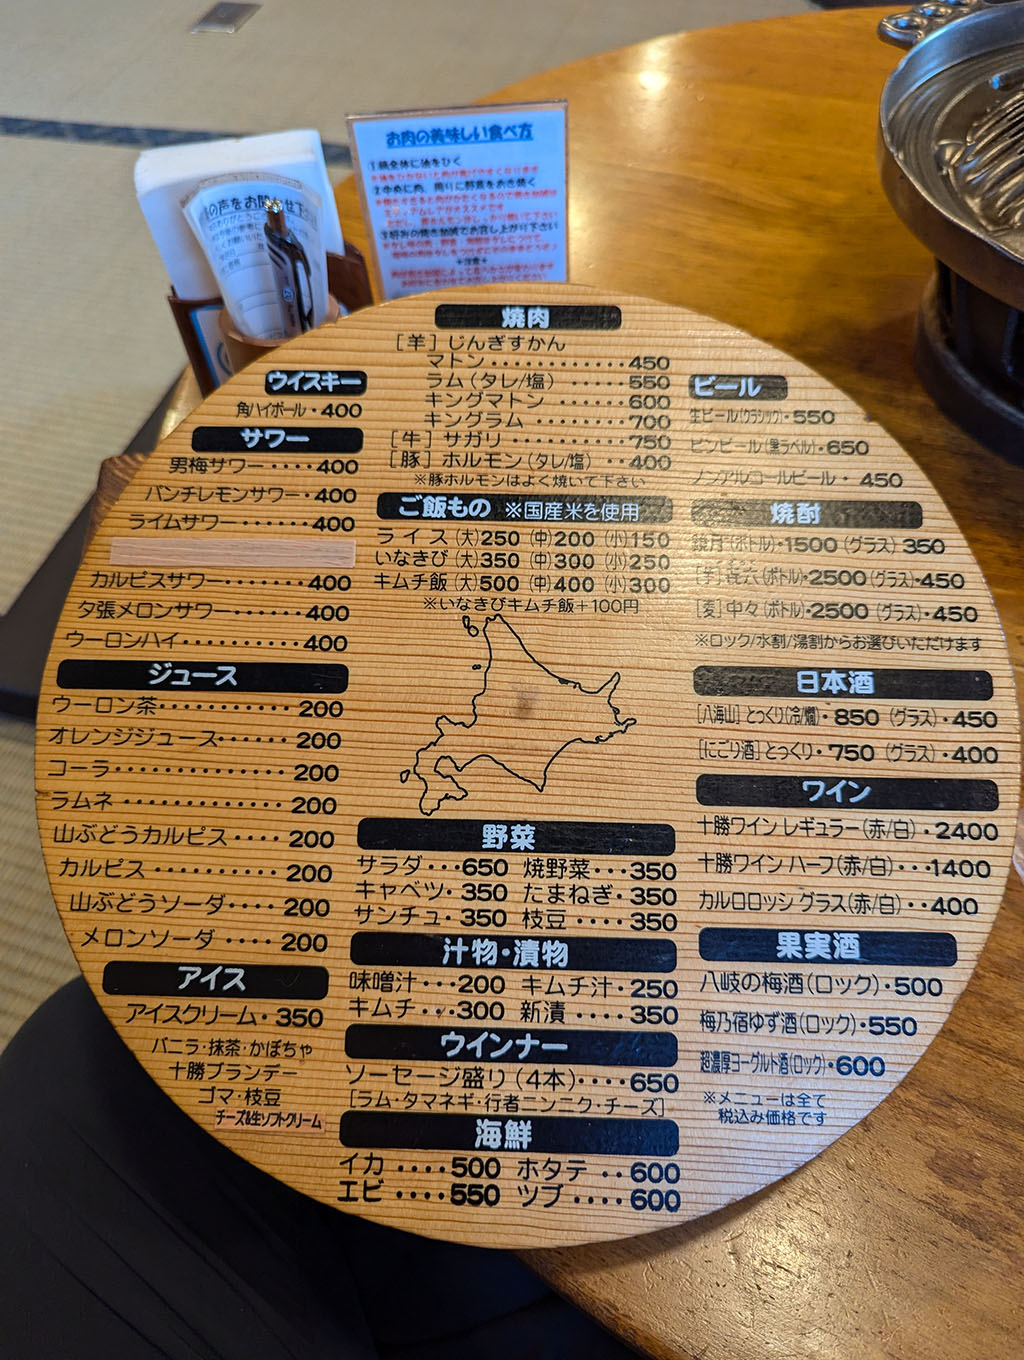 お肉の美味しい食べ方
①鍋全体に油をひく
②中央に肉、周りに野菜をおき焼く
③好みの焼き加減でお召し上がり下さい
＊注意＊
の声をお聞かせ下さい
焼肉
［羊］じんぎすかん
マトン・・・・・・・・・・・・450
ラム（タレ/塩）・・・・・550
キングマトン ・・・・・・600
キングラム ・・・・・・・・700
［牛］サガリ ・・・・・・・・750
［豚］ホルモン（タレ/塩）・・400
※豚ホルモンはよく焼いて下さい
ご飯もの ※国産米を使用
ライス（大）250（中）200（小）150
いなきび（大）350（中）300（小）250
キムチ飯（大）500（中）400（小）300
※いなきびキムチ飯＋100円
野菜
サラダ・・・650 焼野菜・・・350
キャベツ・350 たまねぎ・350
サンチュ・350 枝豆・・・・350
汁物・漬物
味噌汁・・・200 キムチ汁・250
キムチ・・・300 新漬・・・・350
ウインナー
ソーセージ盛り（4本）・・・・650
［ラム・タマネギ・行者ニンニク・チーズ］
海鮮
イカ・・・・500 ホタテ・・600
エビ・・・・550 ツブ・・・・600
ウイスキー
角ハイボール・400
サワー
男梅サワー・・・・400
パンチレモンサワー・400
ライムサワー・・・・・400
カルピスサワー・・・・・・・400
夕張メロンサワー・・・・・400
ウーロンハイ・・・・・・・・400
ジュース
ウーロン茶・・・・・・・・・・・200
オレンジジュース・・・・・・200
コーラ・・・・・・・・・・・・・・200
ラムネ・・・・・・・・・・・・・・200
山ぶどうカルピス・・・・・200
カルピス・・・・・・・・・・・・200
山ぶどうソーダ・・・・・200
メロンソーダ・・・・・200
アイス
アイスクリーム・350
バニラ・抹茶・かぼちゃ
十勝ブランデー
ゴマ・枝豆
チーズ&生ソフトクリーム
ビール
生ビール（クラシック）・550
ビンビール（黒ラベル）・650
ノンアルコールビール・450
焼酎
鏡月（ボトル）・1500（グラス）350
［芋］㐂六（ボトル）・2500（グラス）・450
［麦］中々（ボトル）・2500（グラス）・450
※ロック/水割/湯割からお選びいただけます
日本酒
［八海山］とっくり（冷/燗）・850（グラス）・450
［にごり酒］とっくり・750（グラス）・400
ワイン
十勝ワイン レギュラー（赤/白）・2400
十勝ワイン ハーフ（赤/白）・・・1400
カルロロッシ グラス（赤/白）・・400
果実酒
八岐の梅酒（ロック）・500
梅乃宿ゆず酒（ロック）・550
超濃厚ヨーグルト酒（ロック）・600
※メニューは全て
税込み価格です